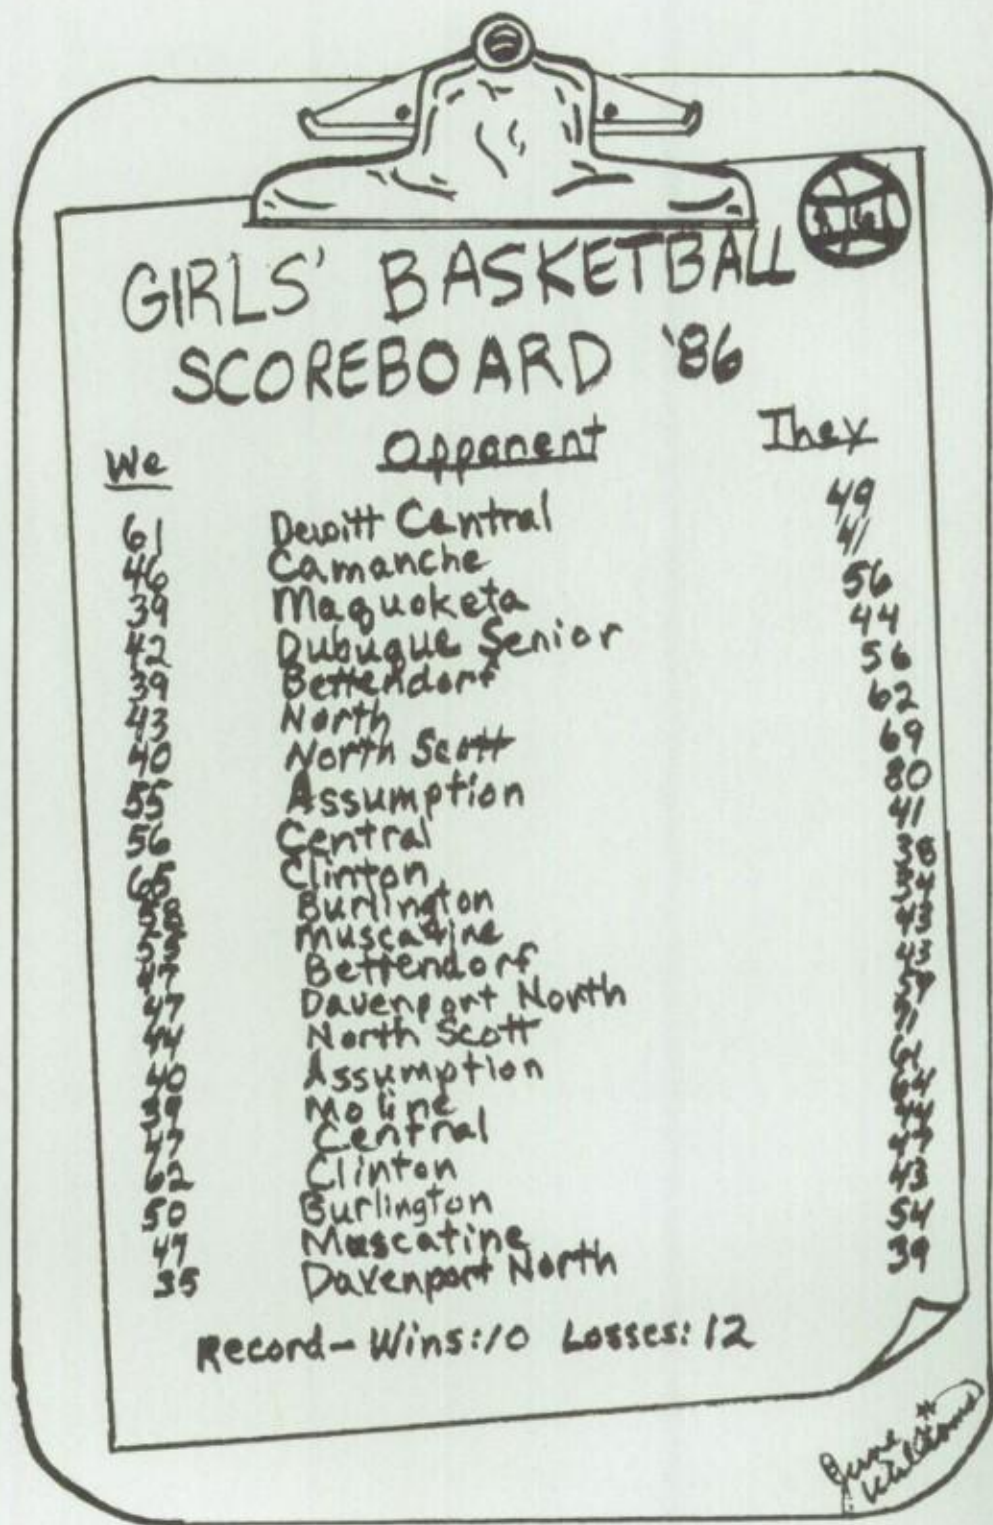 GIRLS' BASKETBALL
SCOREBOARD '86
We Opponent They
61 Dewitt Central 49
46 Camanche 41
39 Maquoketa 56
42 Dubuque Senior 44
39 Bettendorf 56
43 North 62
40 North Scott 69
55 Assumption 80
56 Central 41
65 Clinton 38
58 Burlington 34
55 Muscatine 43
47 Bettendorf 43
47 Davenport North 59
44 North Scott 71
40 Assumption 61
39 Moline 64
47 Central 44
62 Clinton 47
50 Burlington 43
47 Muscatine 54
35 Davenport North 39
Record- Wins:10 Losses: 12
June
Williams